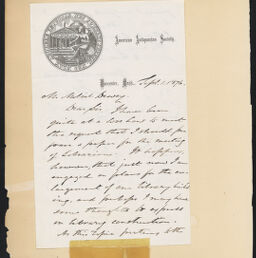 American Antiquarian Society.
Worcester, Mass. Sept. 1. 1876.
Mr. Melvil Dewey,
Dear Sir I have been
quite at a loss how to meet
the request that I should pre
pare a paper for the meeting
of Librarians. It happens,
however, that just now I am
engaged on plans for the en-
largement of our library build
ing, and perhaps I may have
some thoughts to express
on library construction.
As this topic pertains to the